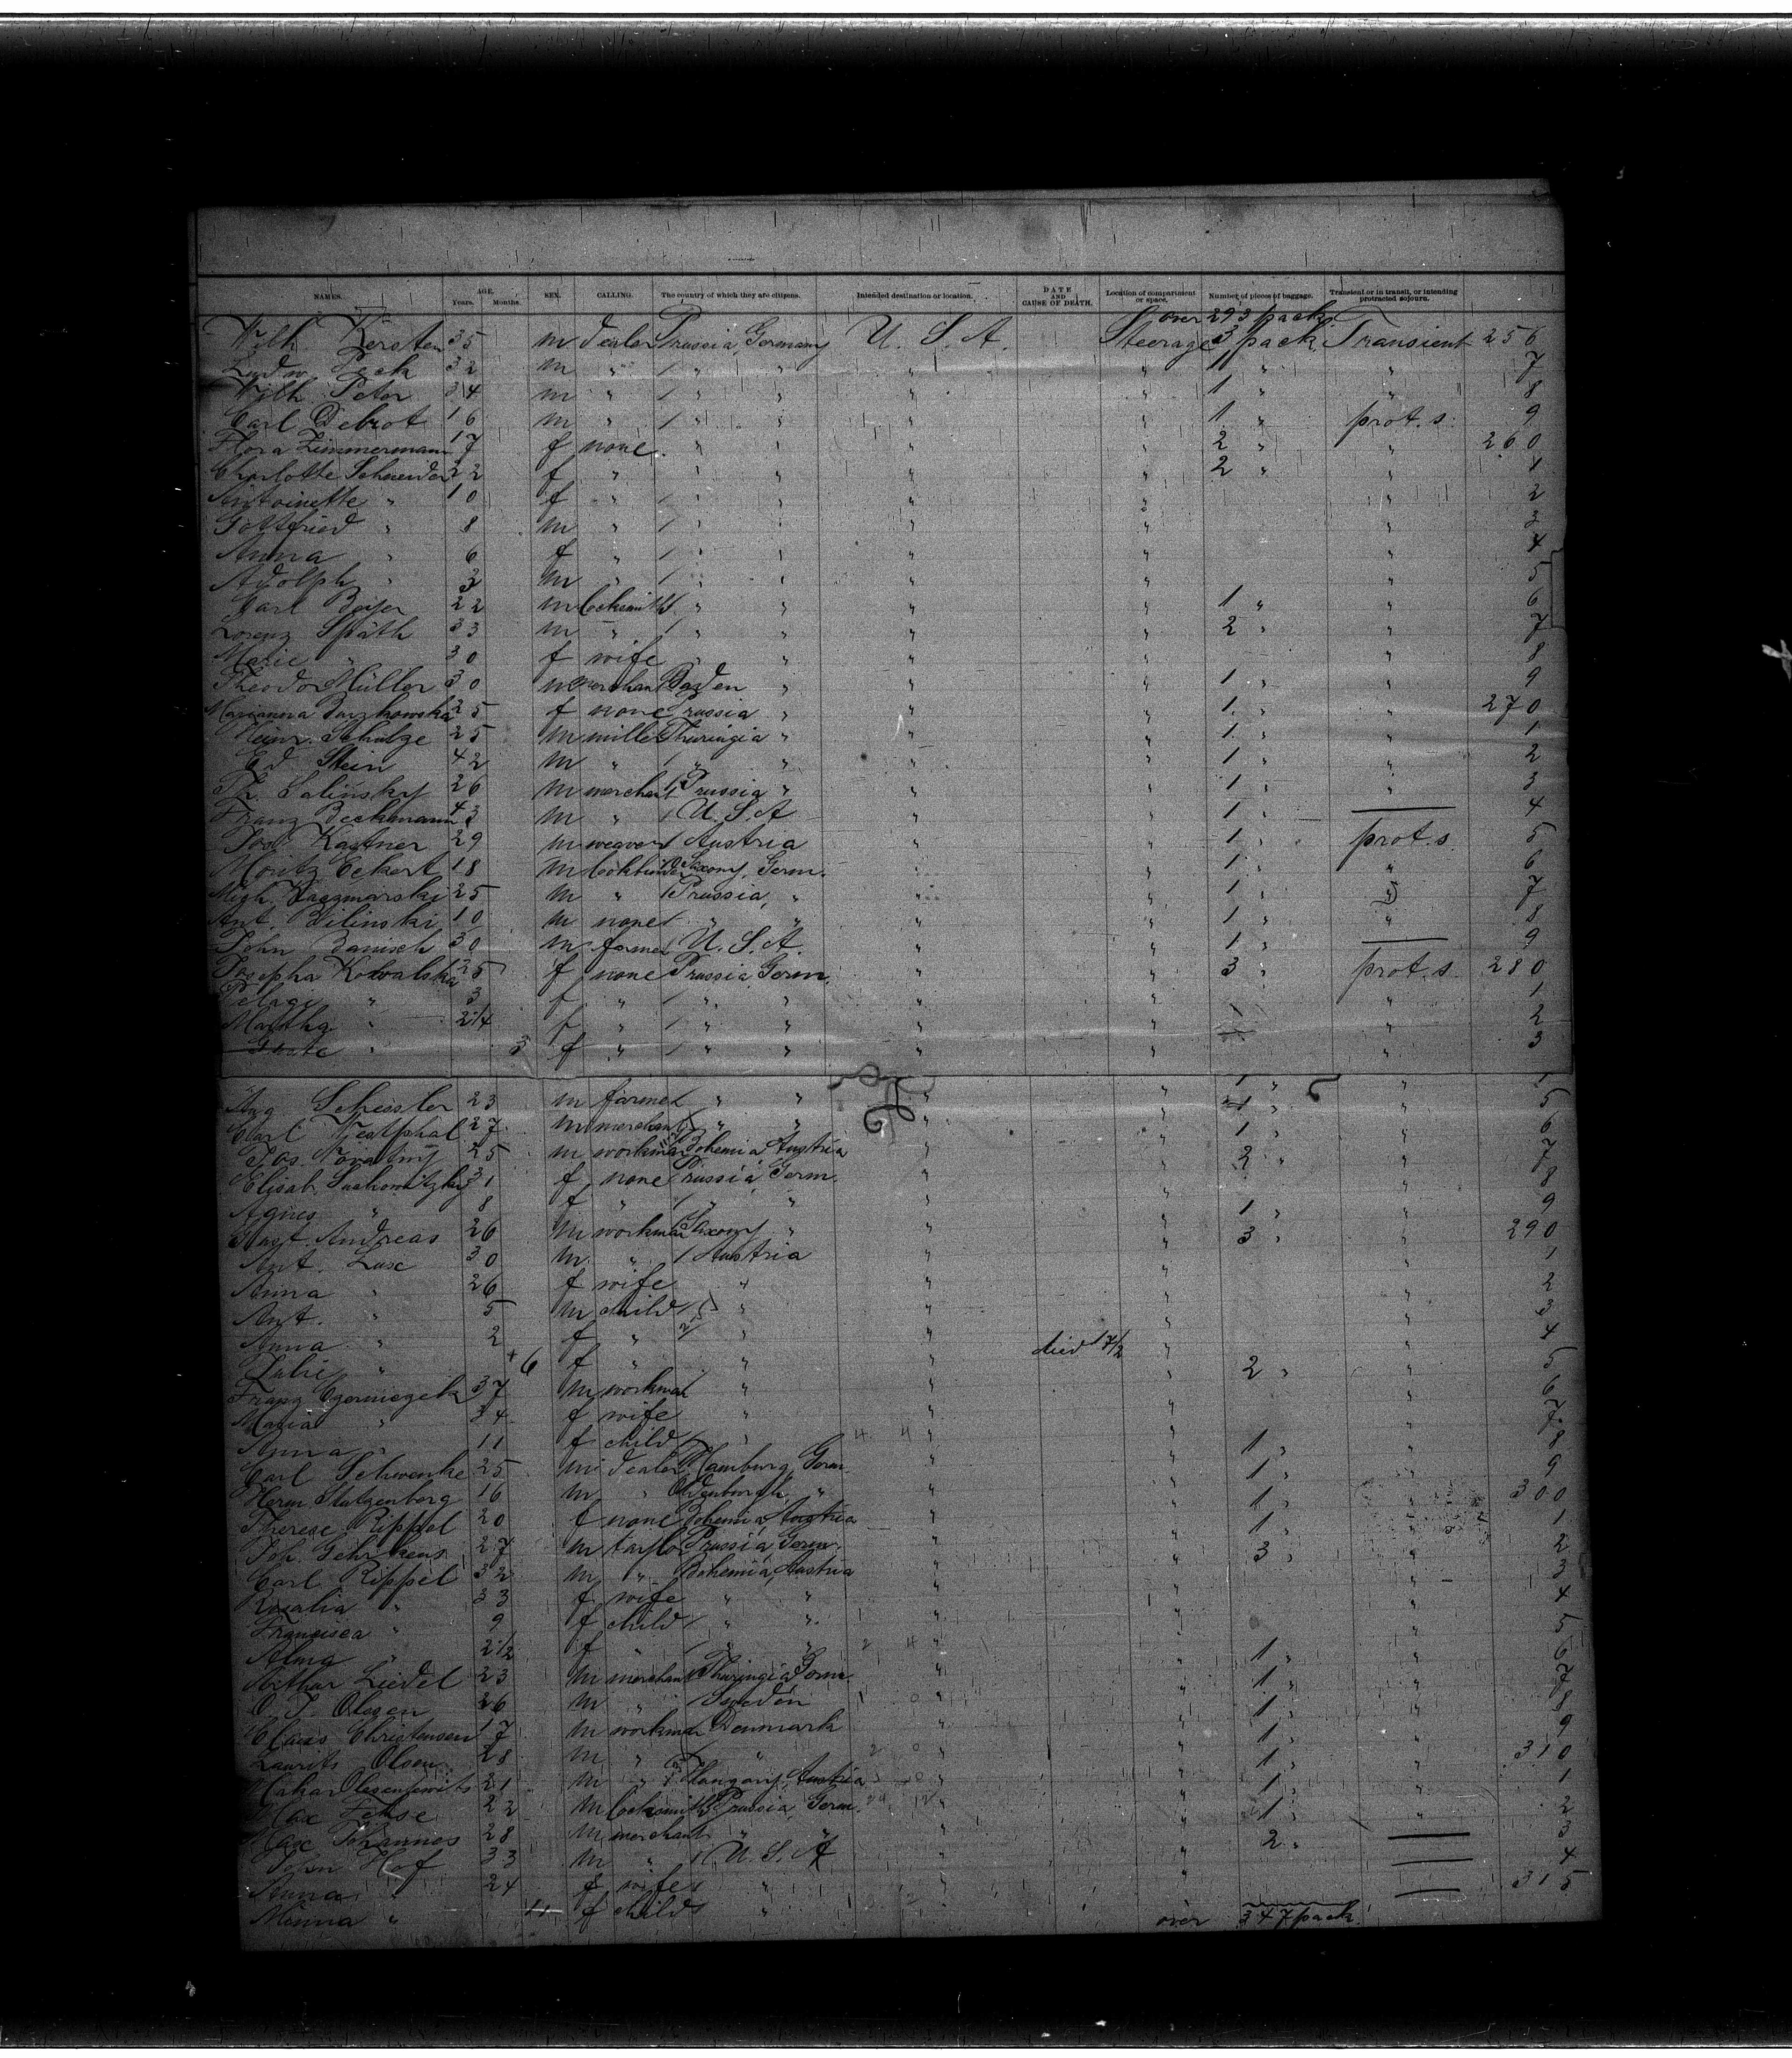 NAMES. AGE. Years. Months. SEX. CALLING. The country of which they are citizens. Intended destination or location. DATE AND CAUSE OF DEATH. Location of compartment or space. Number of pieces of baggage. Transient or in transit, or intending protracted sojourn.
over 293 pack.
Wilh Kersten 35 m dealer Prussia, Germany U. S. A. Steerage 3 pack. Transient 256
Ludw. Peck 32 m " " " " " 1 " " 7
Wilh. Peter 34 m " " " " " 1 " " 8
Carl Debrot 16 m " " " " " 1 " prot. s. 9
Flora Zimmermann 17 f none " " " " 2 " " 260
Charlotte Schneider 22 f " " " " " 2 " " 1
Antoinette " 10 f " " " " " " 2
Gottfried " 8 m " " " " " " 3
Anna " 6 f " " " " " " 4
Adolph " 3 m " " " " " " 5
Carl Beyer 22 m locksmith " " " " 1 " " 6
Lorenz Späth 33 m " " " " " 2 " " 7
Marie " 30 f wife " " " " " 8
Theodor Müller 30 m merchan Baden " " " 1 " " 9
Marianna 25 f none Prussia " " " 1 " " 270
Heinr. Schulze 25 m miller Thuringia " " " 1 " " 1
Ed Stein 42 m " " " " " 1 " " 2
Th. Salinsky 26 m merchant Prussia " " " 1 " " 3
Franz Beckmann 43 m " U. S. A " " 1 " — 4
Jos. Kastner 29 m weaver Austria " " 1 " prot. s. 5
Moritz Eckert 18 m bookbinder Saxony, Germ. " " 1 " " 6
Mich. Kaczmarski 25 m " Prussia, " " " 1 " " 7
Ant. Bilinski 10 m none " " " " 1 " " 8
John Banisch 30 m farmer U. S. A. " " 1 " — 9
Josepha Kowalska 25 f none Prussia, Germ. " " 3 " prot. s. 280
Pelagi " 3 f " " " " " " 1
Martha " 2 1/4 f " " " " " " 2
" 3 f " " " " " " 3
Aug 23 m farmer " " " " 1 " "
Carl Westphal 27 m merchant " " " " 1 " 5
Jos. 25 m workman Bohemia Austria " " 1 " " 6
Elisab. 31 f none Prussia, Germ. " " 2 " " 7
Agnes " 8 f " " " " " " 8
Gust. Andreas 26 m workman Saxony " " " 1 " " 9
Ant. Lux 30 m " Austria " " 3 " " 290
Anna " 26 f wife " " " " 1
Ant. " 5 m child " " " " 2
Anna " 2 f " " " " " 3
Julie " + 6 f " " " died 17/2 " " 4
Franz 37 m workman " " " 2 " " 5
Maria " 34 f wife " " " " 6
Anna " 11 f child " " " " 7
Carl Schwenke 25 m dealer Hamburg, Germ. " " 1 " " 8
Herm. Stulzenberg 16 m " Oldenburgh, " " " 1 " " 9
Therese Rippel 20 f none Bohemia, Austria " " 1 " " 300
Joh. 27 m taylor Prussia, Germ. " " 1 " " 1
Carl Rippel 32 m " Bohemia, Austria " " 3 " " 2
Rosalia " 33 f wife " " " " " 3
Francisca " 9 f child " " " " " 4
Alma " 2 1/2 f " " " " " " 5
Arthur Liedel 23 m merchant Thuringia Germ. " " 1 " " 6
O. J. Olesen 26 m " Sweden " " 1 " " 7
Claus Christensen 17 m workman Denmark " " 1 " " 8
Laurits Olsen 28 m " " " " 1 " " 9
21 m " Hungary, Austria " " 1 " " 310
Max Fehse 22 m locksmith Prussia, Germ. " " 1 " " 1
Max Johannes 28 m merchant " " " " 1 " " 2
John Hof 33 m " U. S. A " " 2 " — 3
Anna " 24 f wife " " " — 4
Minna " 11 f child " " — 315
over 347 pack.